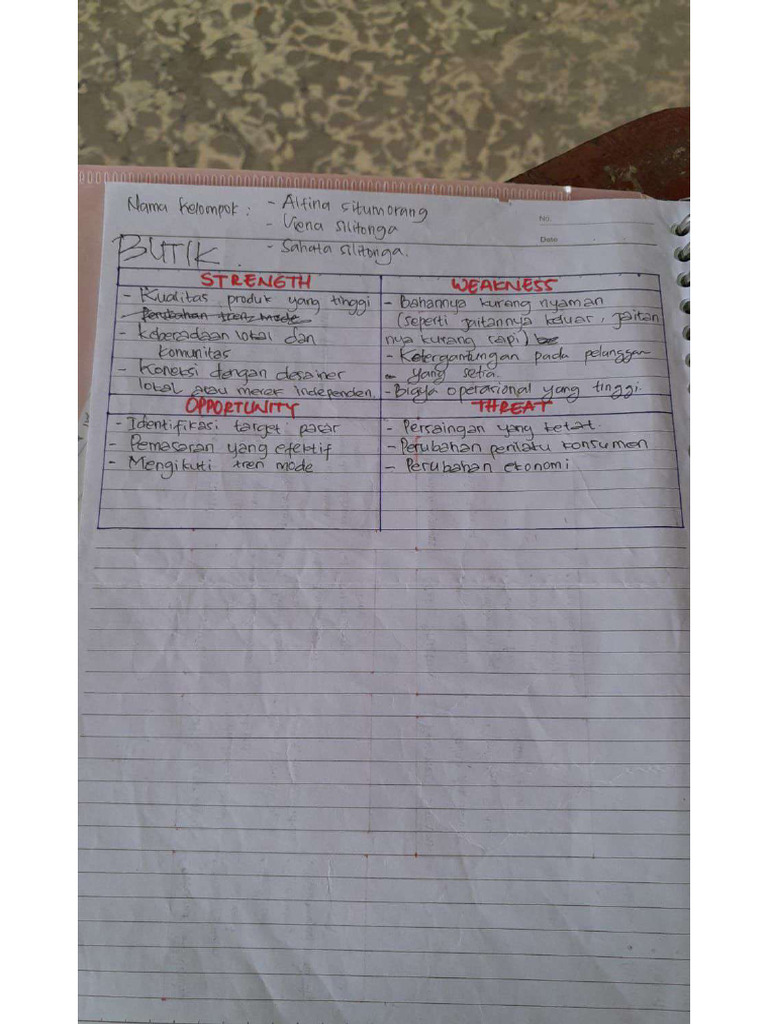 Nama Kelompok : - Alfina Situmorang
- Viena Silitonga
- Sahata Silitonga.
No.
Date
BUTIK
STRENGTH
- Kualitas produk yang tinggi
- Perubahan trenz mode
- Keberadaan lokal dan
komunitas
- Koneksi dengan desainer
lokal atau merek independen.
WEAKNESS
- Bahannya kurang nyaman
(seperti jaitannya keluar, jaitan
nya kurang rapi)
- Ketergantungan pada pelanggan
- yang setia.
- Biaya operasional yang tinggi.
OPPORTUNITY
- Identifikasi target pasar
- Pemasaran yang efektif
- Mengikuti tren mode
THREAT
- Persaingan yang ketat
- Perubahan perilaku konsumen
- Perubahan ekonomi